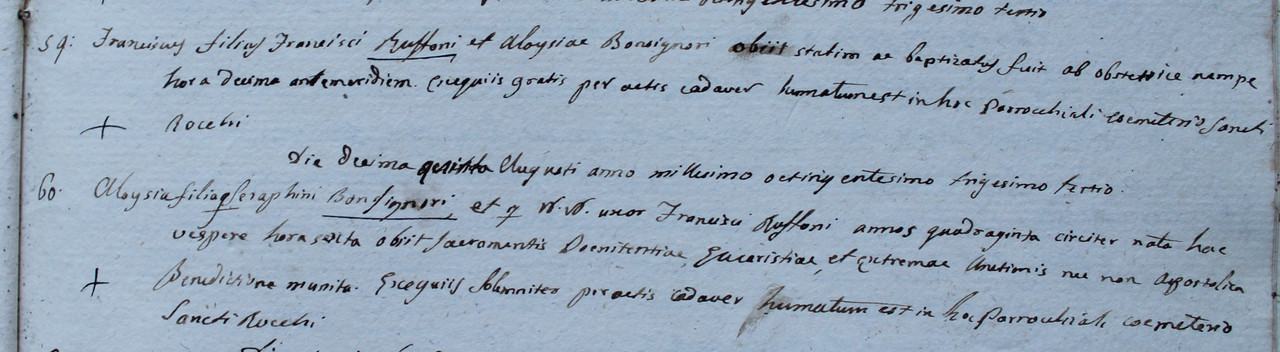 trigesimo tertio
59: Franciscus filius Francisci Ruffoni et Aloysiae Bonsignori obiit statim ac baptizatus fuit ab obstetrice nempe
hora decima antemeridiem. Exequiis gratis peractis cadaver humatum est in hoc Parrochiali coemeterio Sancti
+ Rocchi
Die decima quinta Augusti anno millesimo octingentesimo trigesimo tertio.
60. Aloysia filia q Seraphini Bonsignori, et q N. N. uxor Francisci Ruffoni annos quadraginta circiter nata hac
vespere hora sexta obiit Sacramentis Poenitentiae, Eucaristiae, et extremae Unctionis nec non Apostolica
+ Benedictione munita. Exequiis solemniter peractis cadaver humatum est in hoc Parrochiali coemeterio
Sancti Rocchi